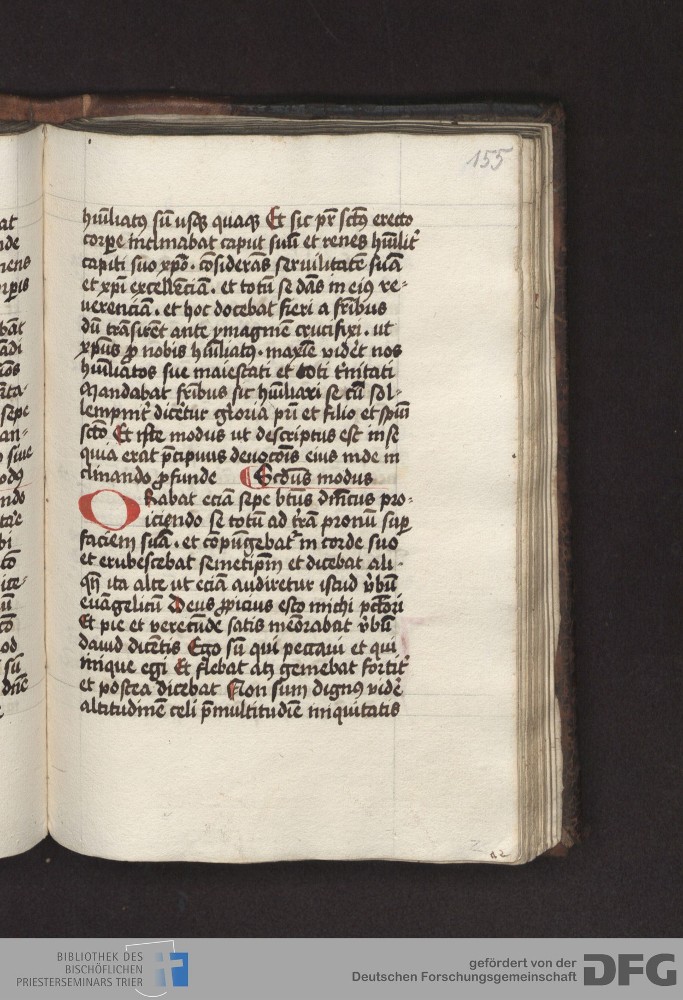 155
hūiliatꝰ sū usqꝫ quaqꝫ Et sic pr̄ sctūs erecto
corꝑe inclinabat caput suū et renes hūilit᷑
capiti suo xp̄o . cōsiderās seruilitatē suā
et xp̄i excellēciā . et totū se dās in eiꝰ re-
uerenciā . et hoc docebat fieri a fr̄ibus
dū trāsirēt ante ymaginē crucifixi . ut
xp̄us ꝓ nobis hūiliatꝰ . maxīe vidēt nos
hūiliatos sue maiestati et toti t͛nitati
Mandabat fr̄ibus sic hūiliari se cū sol-
lempnit᷑ dicētur gloria pr̄i et filio et spūi
sctō Et iste modus ut descriptus est in se
quia erat pͥncipiuis deuocōis eius inde in
clinando ꝓfunde Scdūs modus
Orabat eciā sepe btūs dn̄icus pro-
iiciendo se totū ad t͛rā pronū suꝑ
faciem suā . et cōpūgebat᷑ in corde suo
et erubescebat semetip̄m et dicebat ali-
qn̄ ita alte ut eciā audiretur istud v̄bū
euāgelicū Deus ꝓpicius esto michi pctōri
Et pie et verecūde satis meōrabat v̄bū
dauid dicētis Ego sū qui peccaui et qui
inique egi Et flebat atqꝫ gemebat fortit᷑
et postea dicebat Non sum dignꝰ vidē
altitudinē celi p̄ multitudīe iniquitatis
at
nde
nens
orꝑis
bāt
sepe
an-
sue
ndo
bi
od
sū
dn̄e
BIBLIOTHEK DES
BISCHÖFLICHEN
PRIESTERSEMINARS TRIER
gefördert von der
Deutschen Forschungsgemeinschaft
DFG